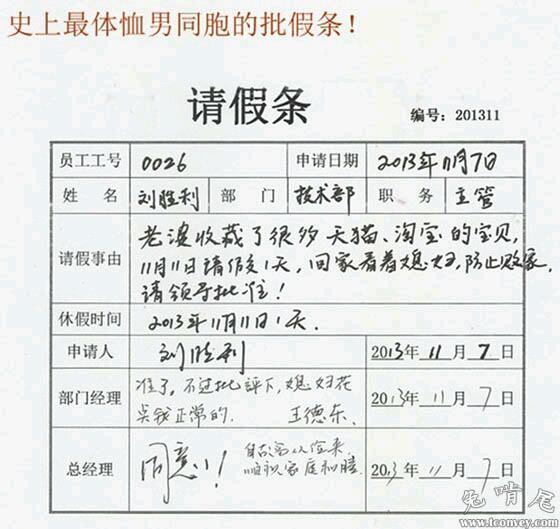 史上最体恤男同胞的批假条！
请假条
编号：201311
员工工号 0026 申请日期 2013年11月7日
姓名 刘胜利 部门 技术部 职务 主管
请假事由 老婆收藏了很多天猫、淘宝的宝贝，
11月11日请假1天，回家看着媳妇，防止败家，
请领导批准！
休假时间 2013年11月11日1天.
申请人 刘胜利 2013年11月7日
部门经理 准了，不过批评下，媳妇花
吴钱正常的. 王德东、 2013年11月7日
总经理 同意！！ 自古富从俭来
家庭和睦. 2013年11月7日
兔啃尾
www.tcomey.com